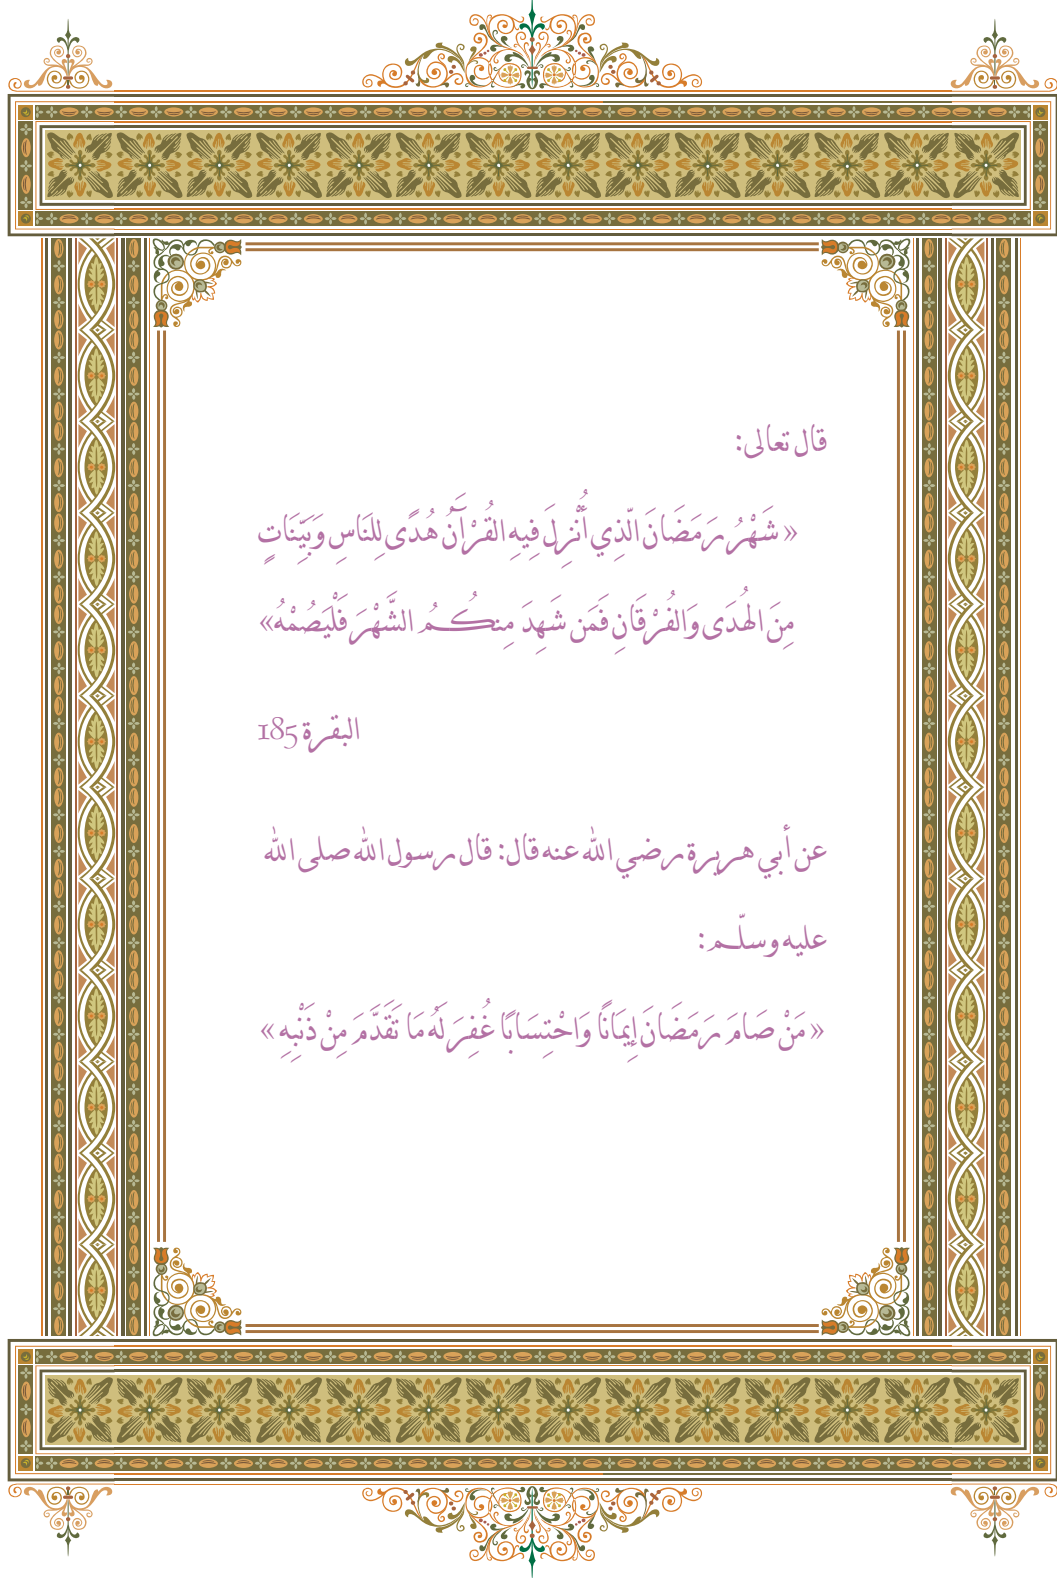 قال تعالى:
« شَهْرُ رَمَضَانَ الّذِي أُنْزِلَ فِيهِ القُرْآَنُ هُدًى لِلنَاسِ وَبَيِّنَاتٍ
مِنَ الهُدَى وَالفُرْقَانِ فَمَن شَهِدَ مِنكُمُ الشَّهْرَ فَلْيَصُمْهُ»
البقرة 185
عن أبي هريرة رضي الله عنه قال: قال رسول الله صلى الله
عليه وسلّم:
« مَنْ صَامَ رَمَضَانَ إِيمَانًا وَاحْتِسَابًا غُفِرَ لَهُ مَا تَقَدَّمَ مِنْ ذَنْبِهِ »